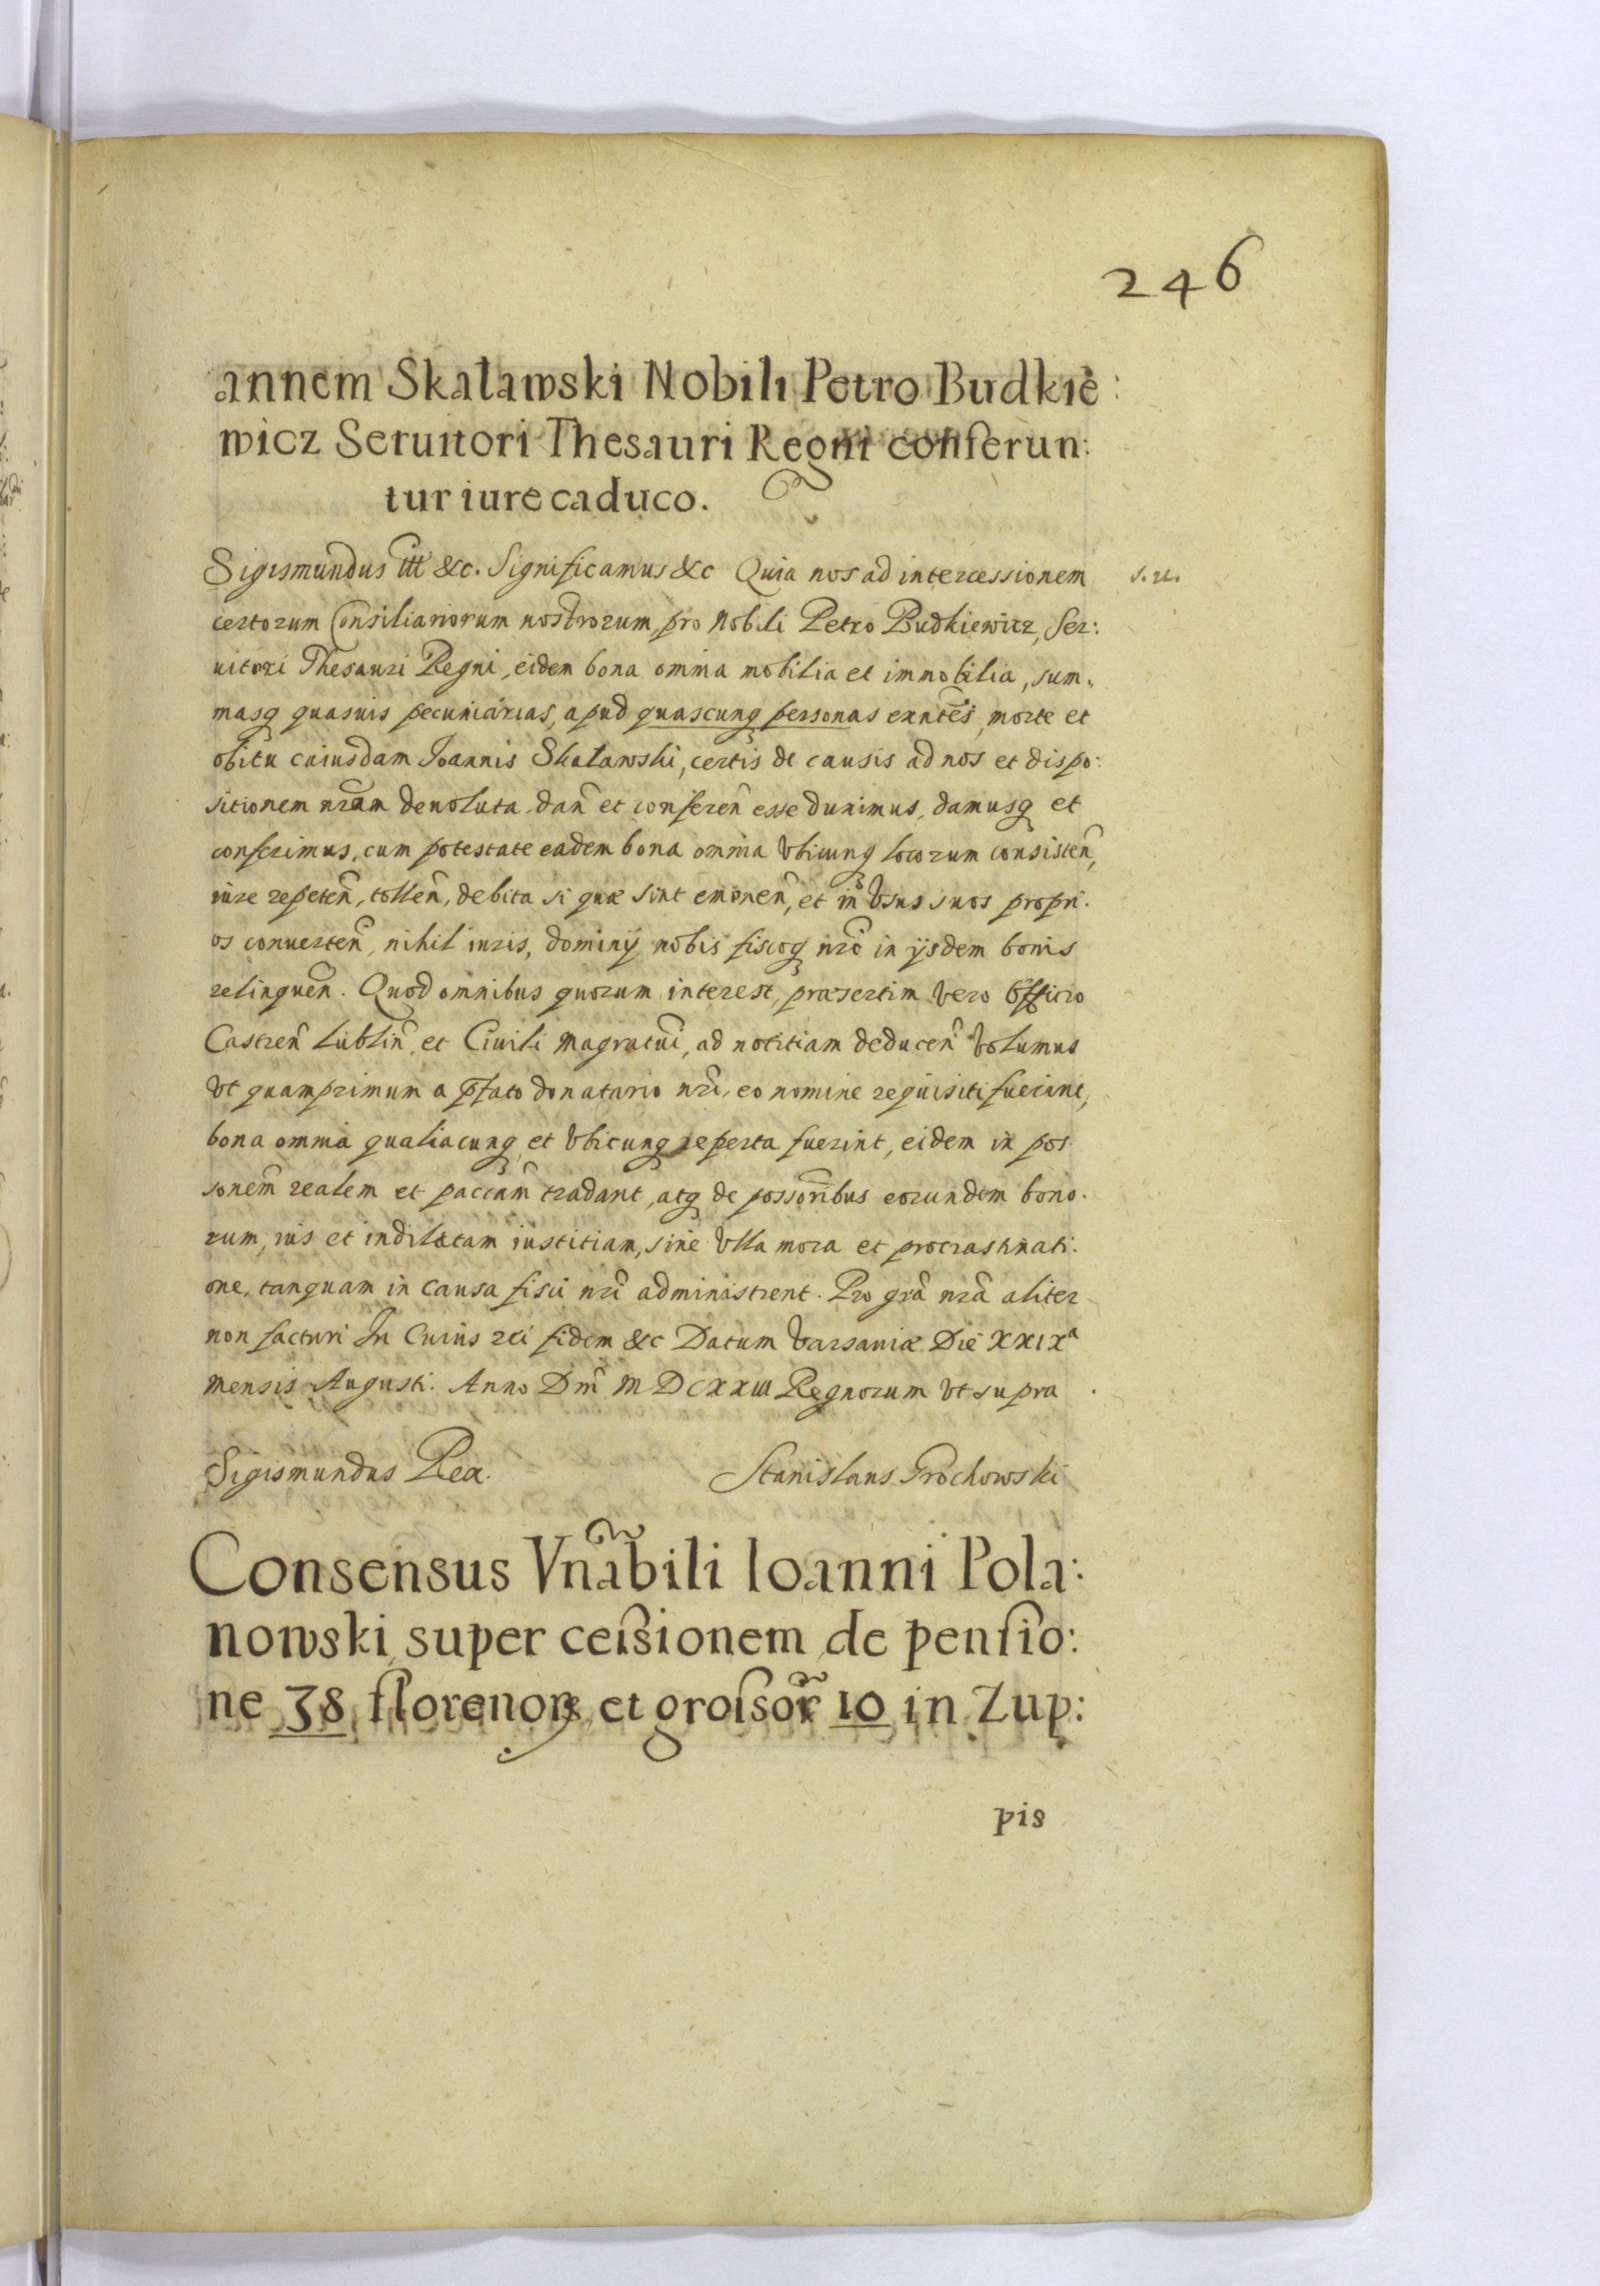 246
annem Skaławski Nobili Petro Budkie:
wicz Seruitori Thesauri Regni conferun:
tur iure caduco.
Sigismundus III &c. Significamus &c Quia nos ad intercessionem
certorum Consiliariorum nostrorum, pro Nobili Petro Budkiewicz, Ser:
uitori Thesauri Regni, eidem bona omnia mobilia et immobilia, sum„
masq quasuis pecuniarias, apud quascunq personas exntẽs, morte et
obitu cuiusdam Joannis Skaławski, certis de causis ad nos et dispo:
sitionem nrãm deuoluta dañ et conferẽn esse duximus, damusq et
conferimus, cum potestate eadem bona omnia vbicunq locorum consistẽn,
iure repetẽn, tollẽn, debita si quæ sint emonẽn, et in vsus suos propri.
os conuertẽn, nihil iuris, dominÿ nobis fiscoq nrõ in ÿsdem bonis
relinquẽn. Quod omnibus quorum interest, præsertim vero Officio
Castreñ Lubliñ, et Ciuili Magratui, ad notitiam deducẽn volumus
vt quamprimum a pfato donatario nrĩ, eo nomine requisiti fuerint,
bona omnia qualiacunq et vbicunq reperta fuerint, eidem in pos
sonẽm realem et paccãm tradant, atq de possorĩbus eorundem bono.
rum, ius et indilatam iustitiam, sine vlla mora et procrastinati.
one, tanquam in causa fisci nrĩ administrent. Pro grã nrã aliter
non facturi In Cuius rei fidem &c Datum Varsauiæ Die XXIXª
Mensis Augusti. Anno Dñi MDCXXIII Regnorum vt supra
s. r.
Sigismundus Rex. Stanislaus Grochowski
Consensus Vnãbili Ioanni Pola:
nowski super ceſsionem de penſio:
ne 38 florenorꝝ et groſsor̃ 10 in Zup:
pis